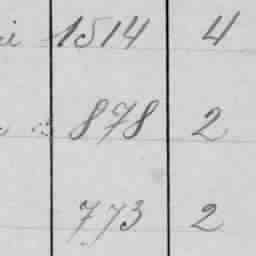 1514 4
878 2
773 2